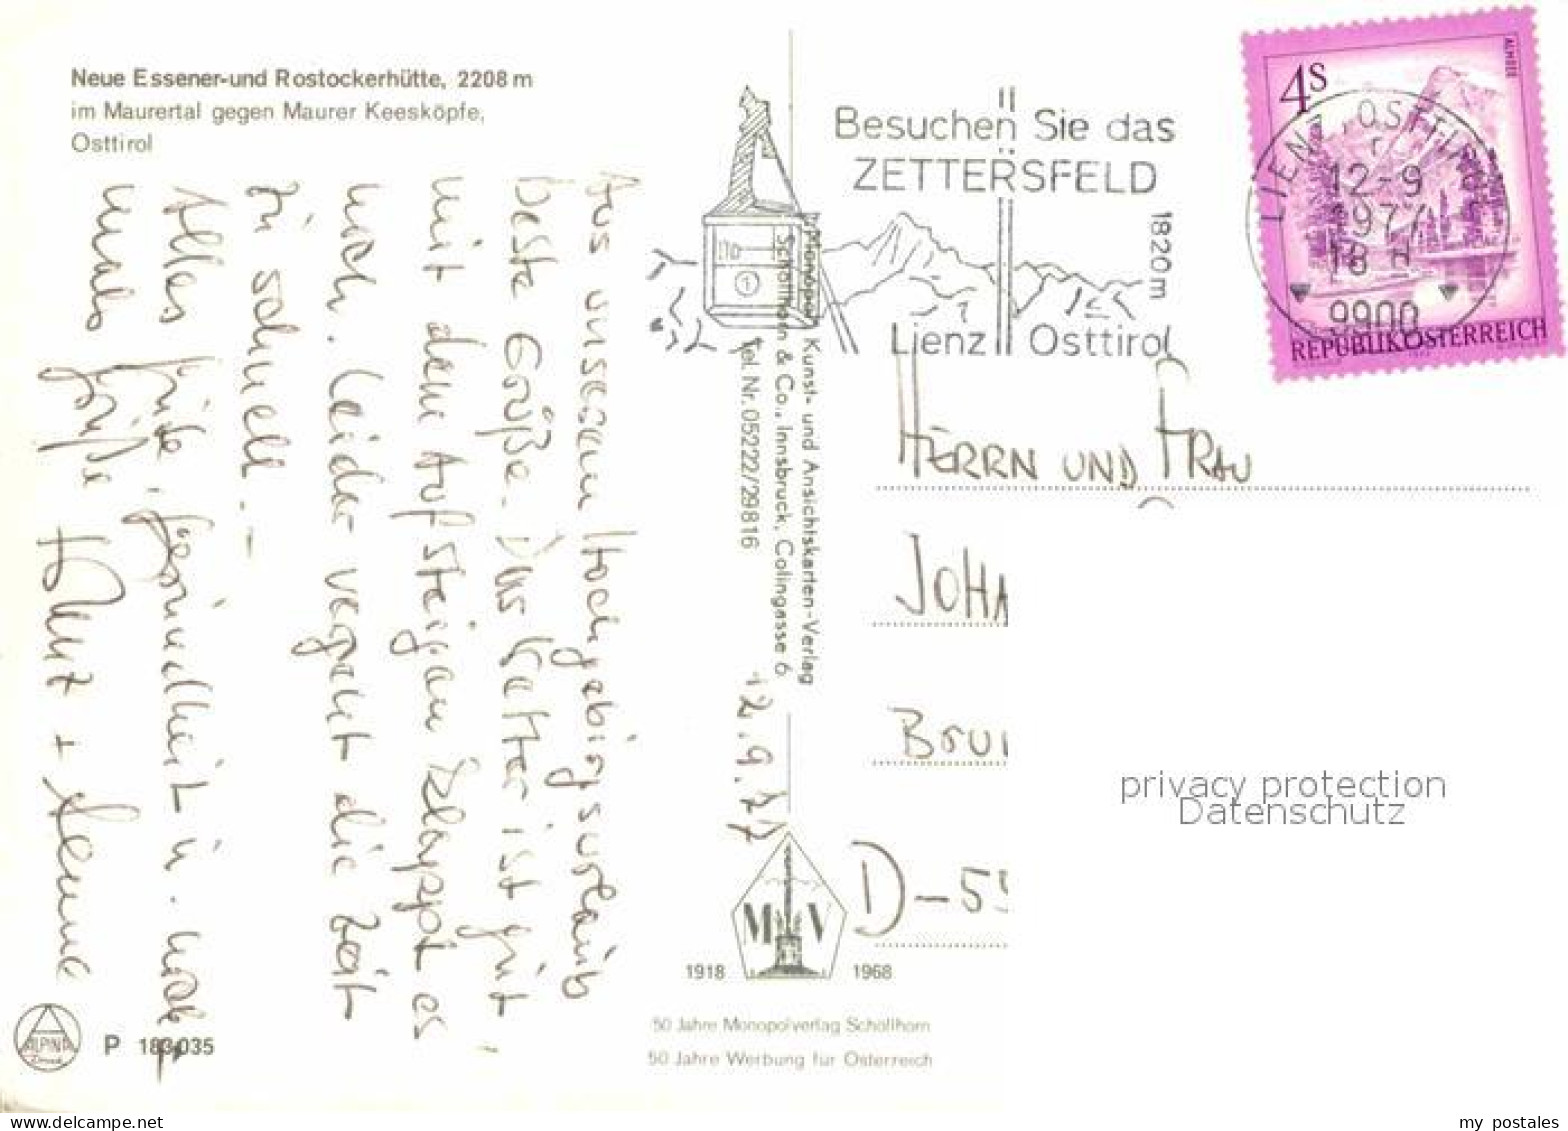 Neue Essener-und Rostockerhütte, 2208 m
im Maurertal gegen Maurer Keesköpfe,
Osttirol
Besuchen Sie das
ZETTERSFELD
1820 m
Lienz Osttirol
4S
ALMSEE
REPUBLIK ÖSTERREICH
LIENZ, OSTTIROL
r
12-9
1977
18 H
9900
12.9.77
Aus unserem Hochgebirgsurlaub
beste Grüße. Das Wetter ist gut,
mit dem Aufsteigen klappt es
noch. Leider vergeht die Zeit
zu schnell.-
Alles Gute, Gesundheit u. noch
mals Grüße
Monopol Kunst- und Ansichtskarten-Verlag
Schöllhorn & Co., Innsbruck, Colingasse 6
Tel. Nr. 05222/29816
HERRN UND FRAU
JOHA
D-55
M V
1918 1968
50 Jahre Monopolverlag Schöllhorn
50 Jahre Werbung für Österreich
ALPINA
Druck
P 183 035
privacy protection
Datenschutz
www.delcampe.net
my_postales